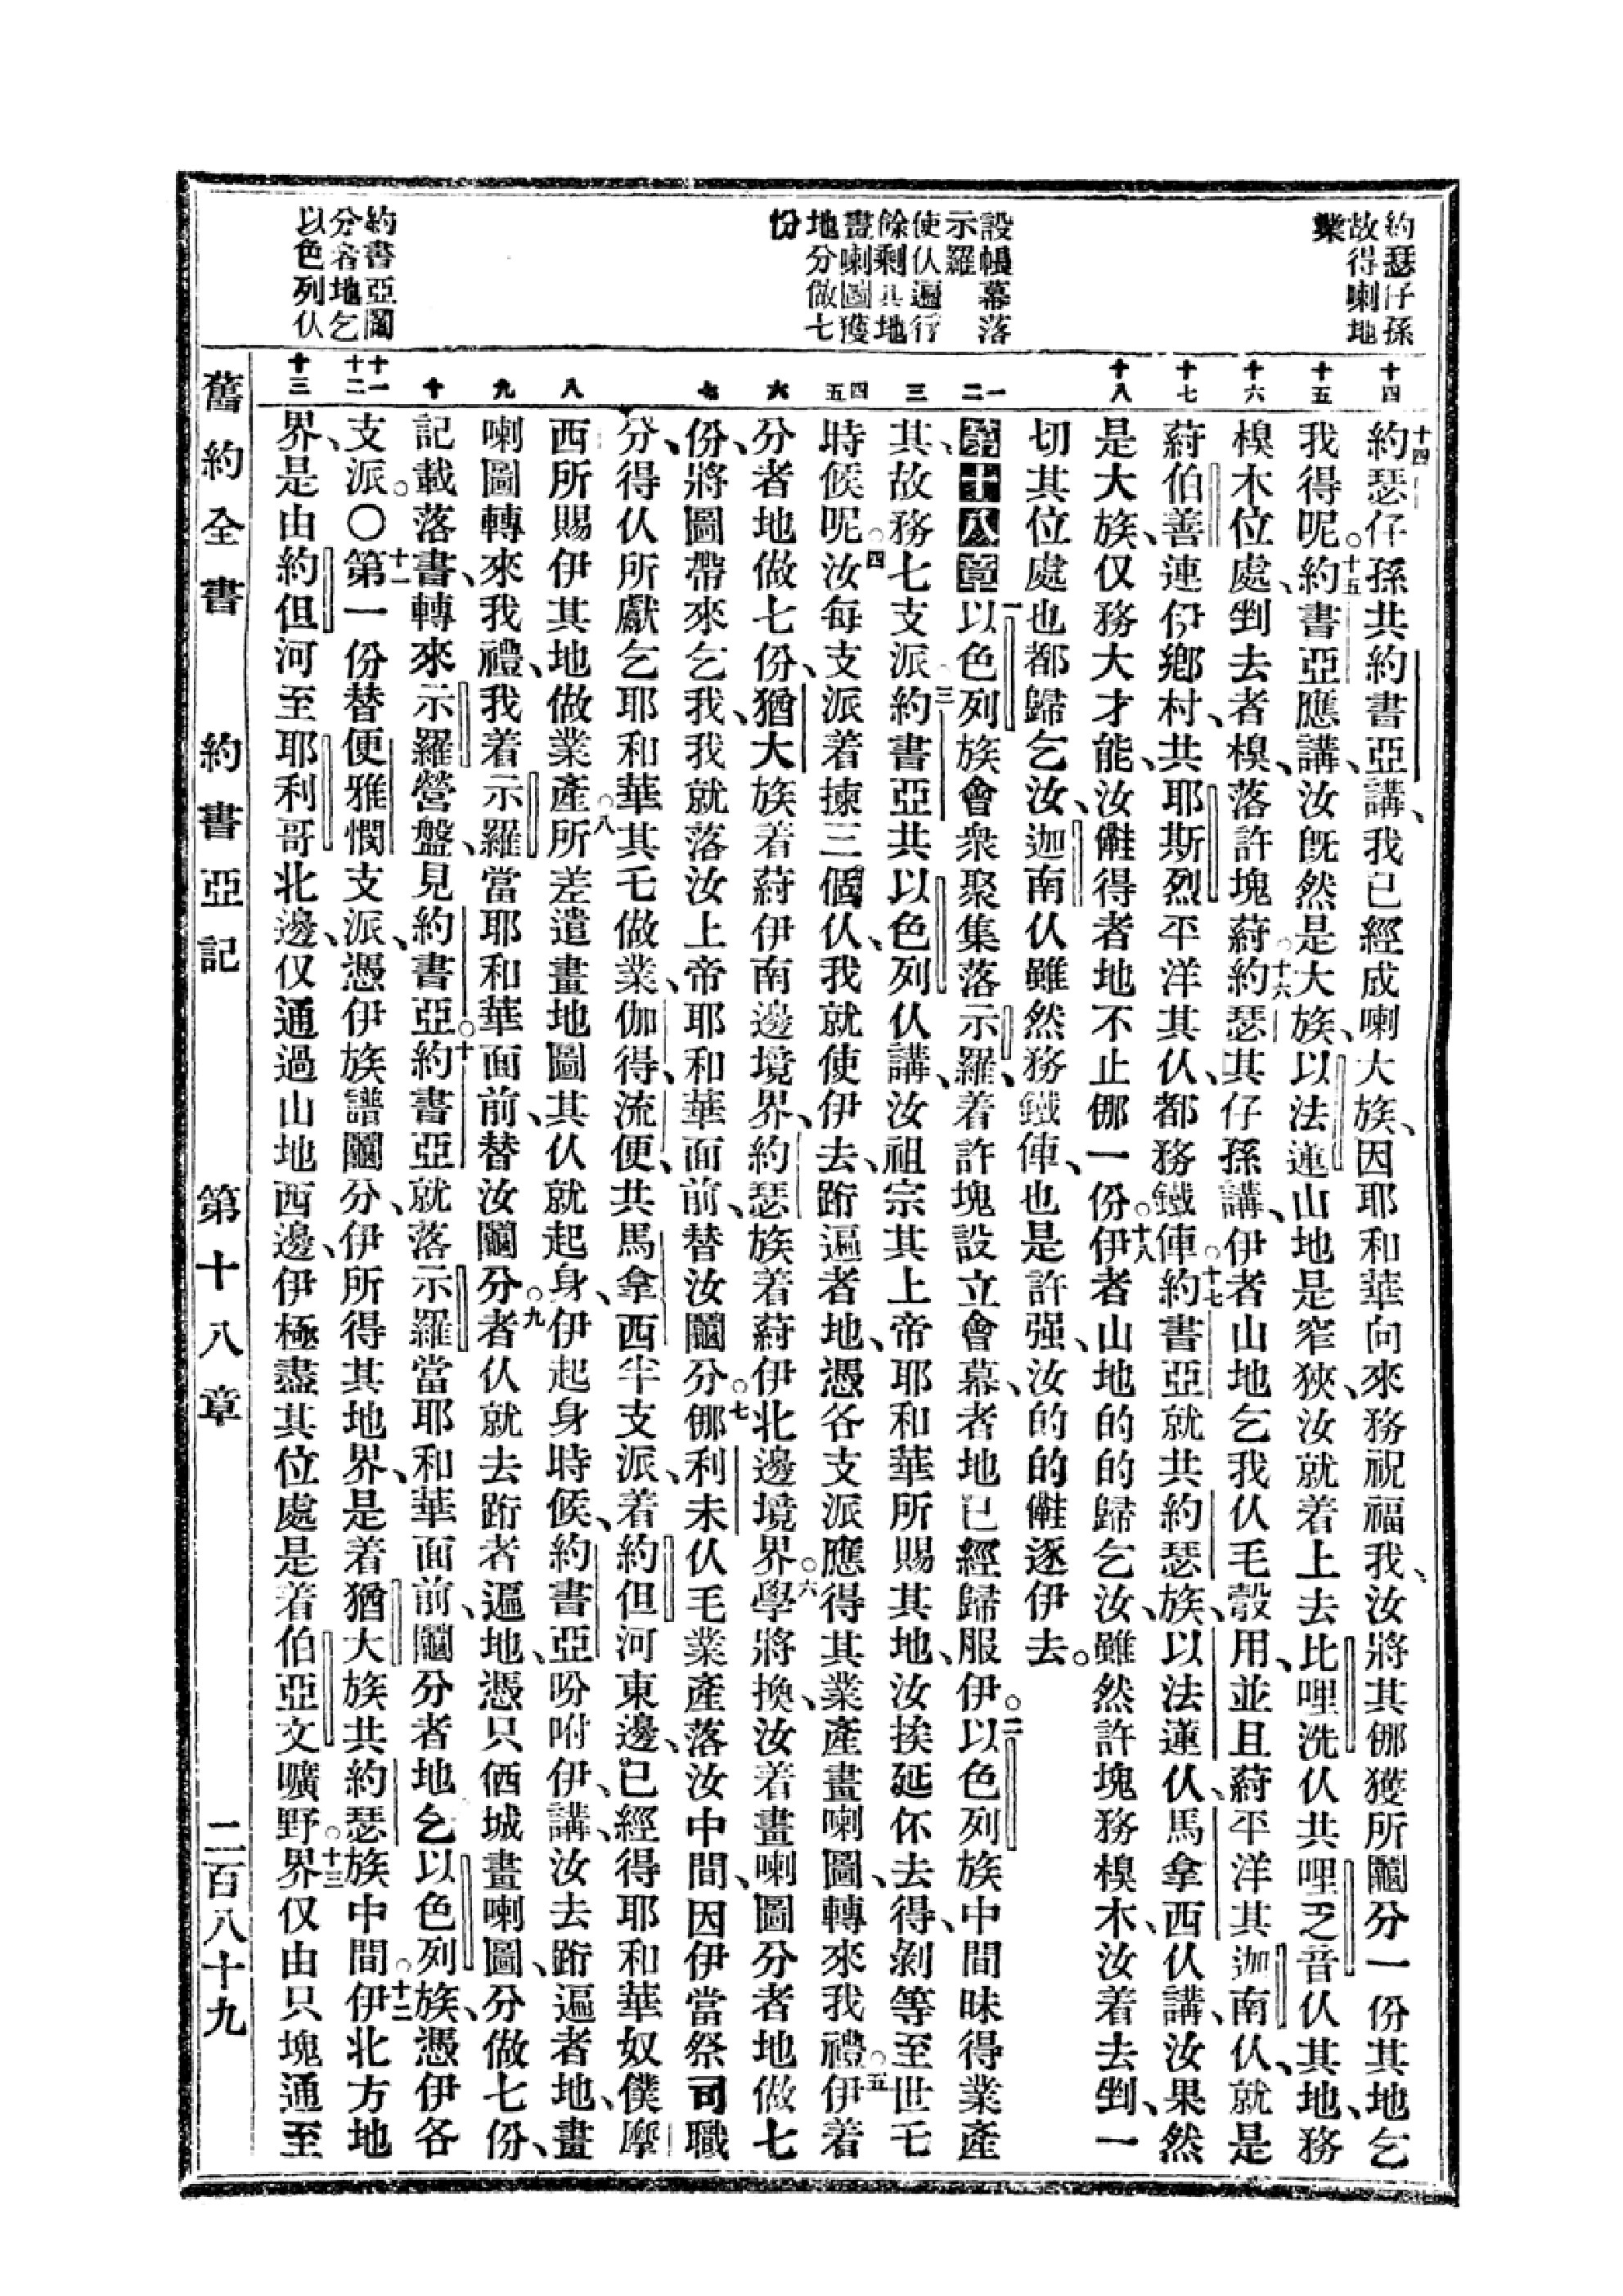 約瑟仔孫
故得喇地
業
設帳幕落
示羅
使仈遍行
餘剩其地
畫喇圖獲
地分做七
份
約書亞鬮
分者地乞
以色列仈
十四
十五
十六
十七
十八
一
二
三
四
五
六
七
八
九
十
十一
十二
十三
十四約瑟仔孫共約書亞講、我已經成喇大族、因耶和華向來務祝福我、汝將其㑚獲所鬮分一份其地乞
我得呢。十五約書亞應講、汝旣然是大族、以法蓮山地是窄狹、汝就着上去比哩洗仈共哩乏音仈其地、務
樕木位處、剉去者樕、落許塊蒔。十六約瑟其仔孫講、伊者山地乞我仈毛彀用、並且蒔平洋其迦南仈、就是
蒔伯善連伊鄕村、共耶斯烈平洋其仈、都務鐵俥。十七約書亞就共約瑟族、以法蓮仈、馬拿西仈講、汝果然
是大族、仅務大才能、汝㒕得者地不止㑚一份。十八伊者山地的的歸乞汝、雖然許塊務樕木、汝着去剉、一
切其位處也都歸乞汝、迦南仈雖然務鐵俥、也是許强、汝的的㒕逐伊去。
第十八章一以色列族會衆聚集落示羅、着許塊設立會幕、者地已經歸服伊。二以色列族中間昧得業產
其、故務七支派。三約書亞共以色列仈講、汝祖宗其上帝耶和華所賜其地、汝挨延伓去得、剝等至世乇
時候呢。四汝每支派着揀三個仈、我就使伊去、跓遍者地、憑各支派應得其業產畫喇圖、轉來我禮。五伊着
分者地做七份、猶大族着蒔伊南邊境界、約瑟族着蒔伊北邊境界。六學將換、汝着畫喇圖分者地做七
份、將圖帶來乞我、我就落汝上帝耶和華面前、替汝鬮分。七㑚利未仈毛業產落汝中間、因伊當祭司職
分、得仈所獻乞耶和華其乇做業、伽得、流便、共馬拿西半支派、着約但河東邊、已經得耶和華奴僕摩
西所賜伊其地做業產。八所差遣畫地圖其仈就起身、伊起身時候、約書亞吩咐伊講、汝去跓遍者地、畫
喇圖轉來我禮、我着示羅當耶和華面前、替汝鬮分。九者仈就去跓者遍地、憑只価城畫喇圖、分做七份、
記載落書、轉來示羅營盤、見約書亞。十約書亞就落示羅當耶和華面前、鬮分者地乞以色列族、憑伊各
支派。〇十一第一份替便雅憫支派、憑伊族譜鬮分、伊所得其地界、是着猶大族共約瑟族中間。十二伊北方地
界、是由約但河至耶利哥北邊、仅通過山地西邊、伊極盡其位處是着伯亞文曠野。十三界仅由只塊通至
舊約全書 約書亞記 第十八章 二百八十九